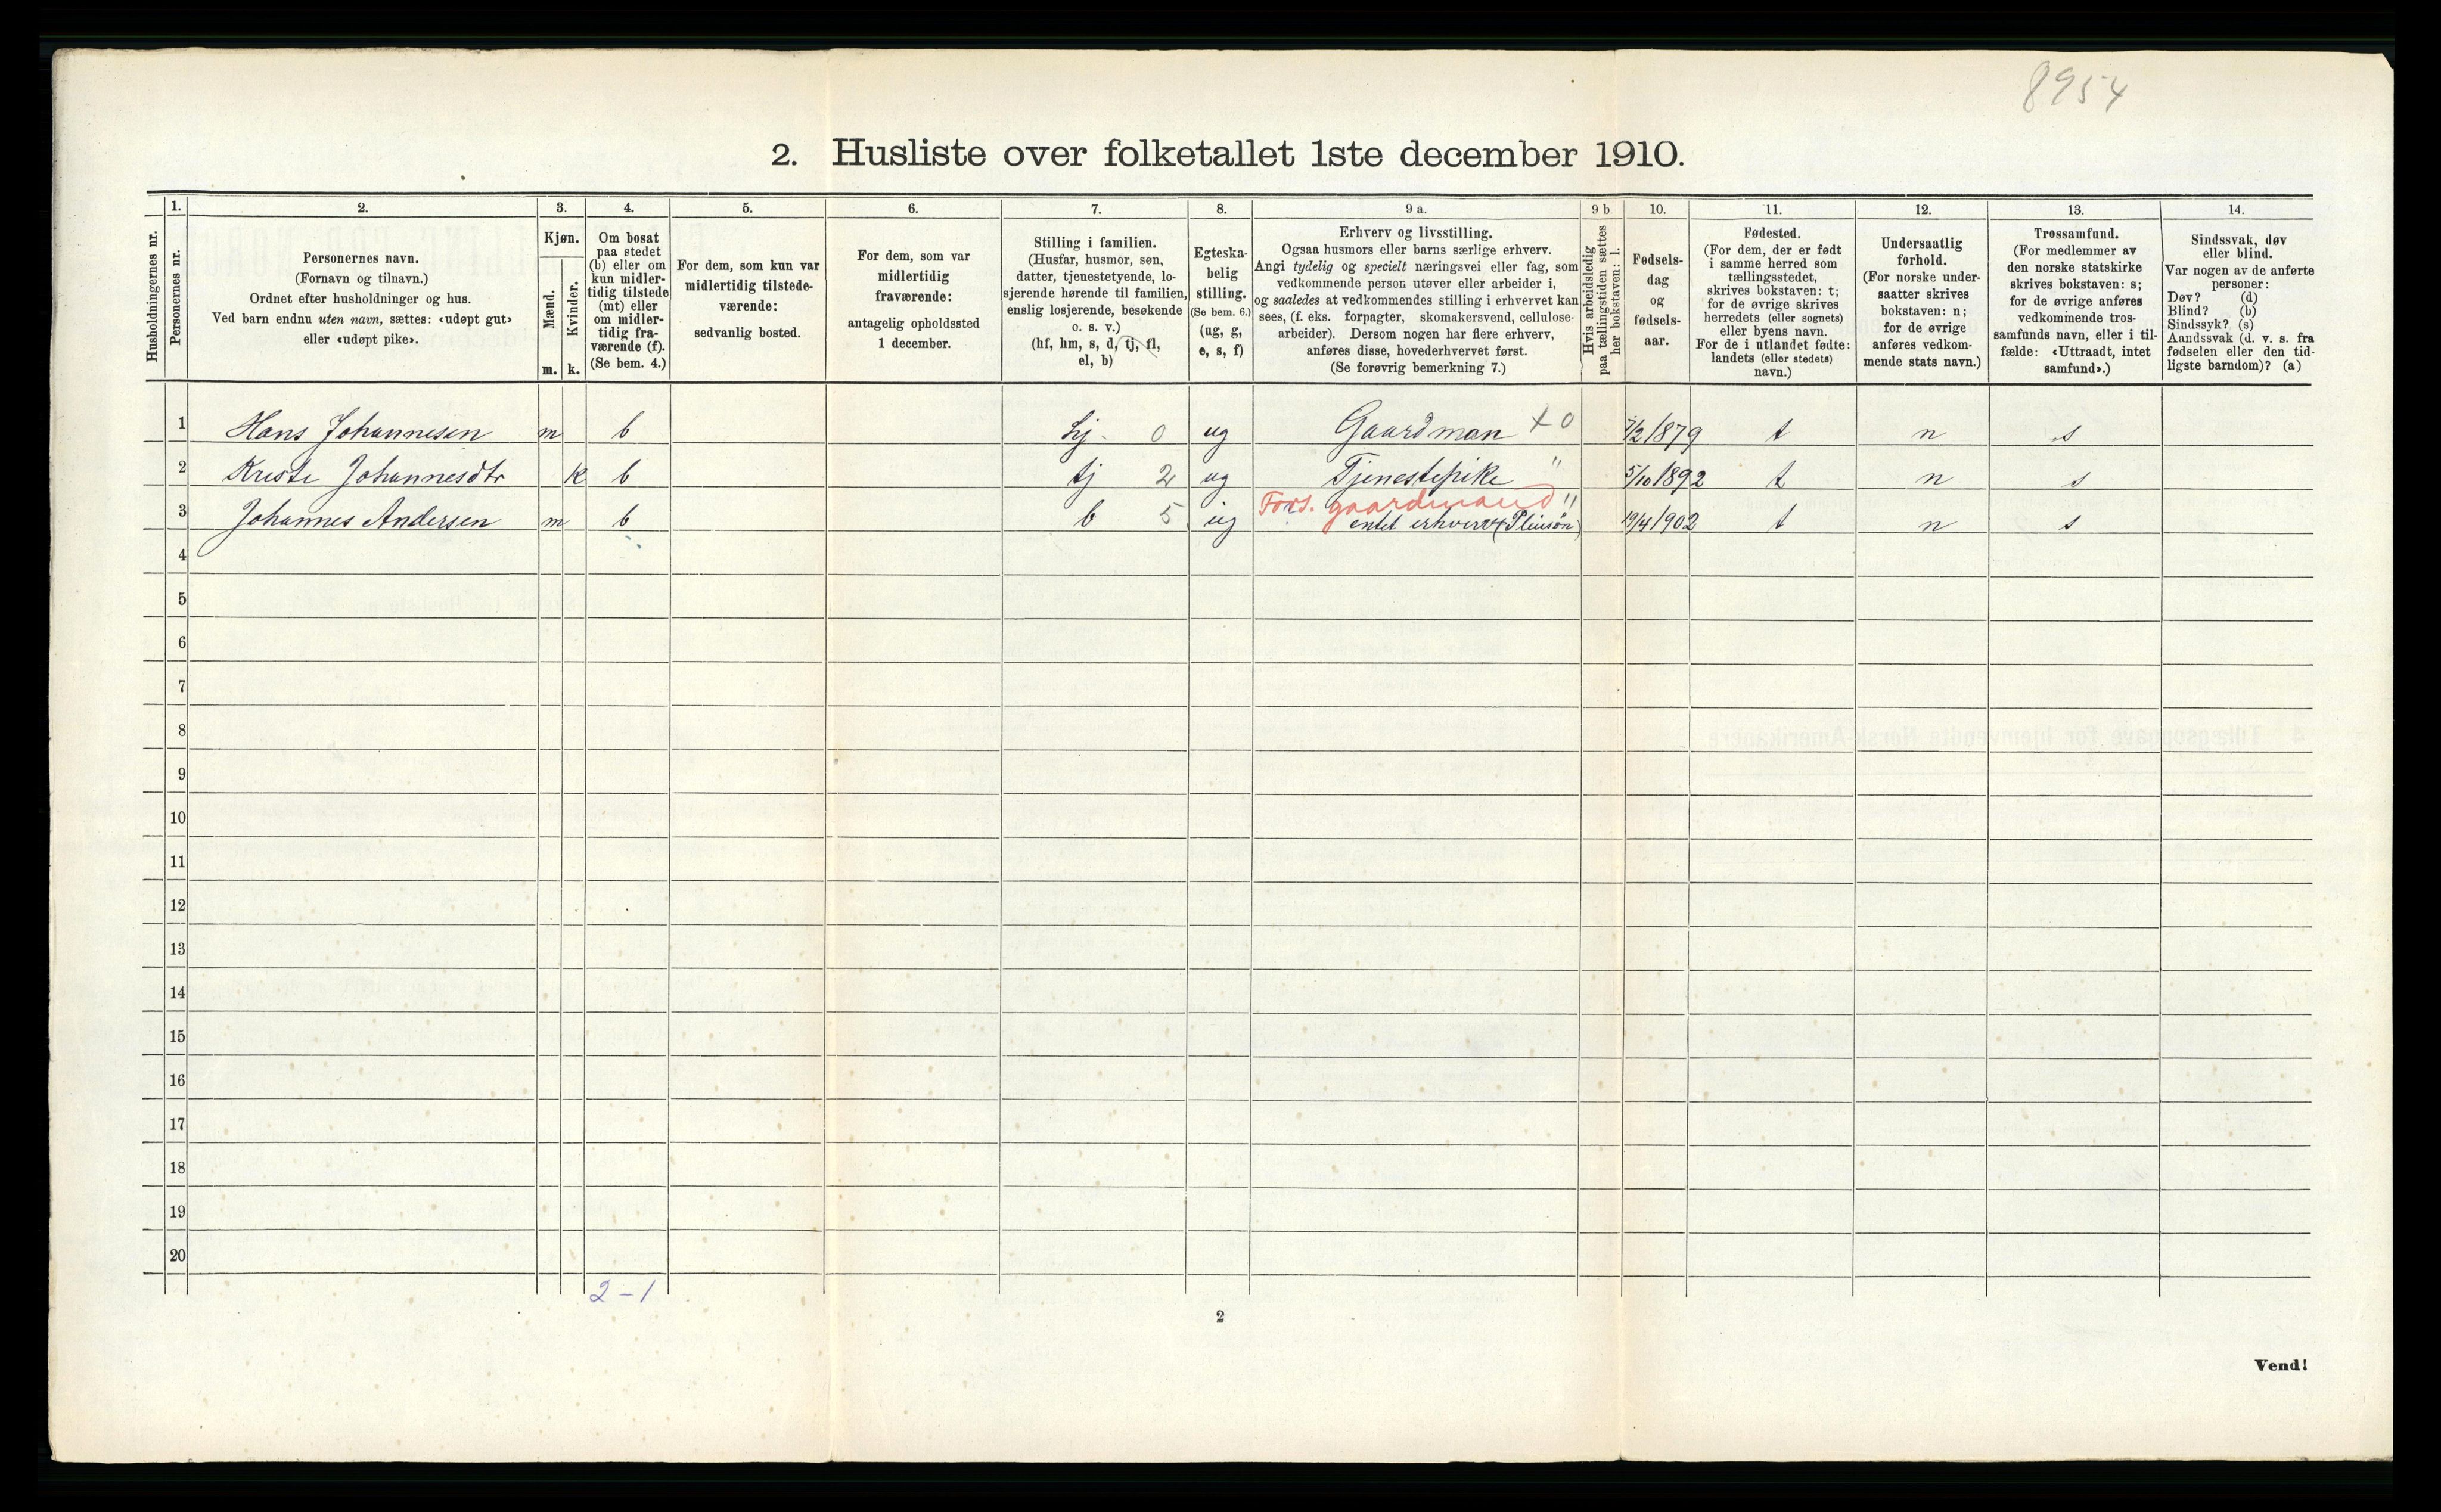 8954
2. Husliste over folketallet 1ste december 1910.
Husholdningernes nr.
1.
Personernes nr.
2.
Personernes navn.
(Fornavn og tilnavn.)
Ordnet efter husholdninger og hus.
Ved barn endnu uten navn, sættes: «udøpt gut»
eller «udøpt pike».
3.
Kjøn.
Mænd.
Kvinder.
m. k.
4.
Om bosat
paa stedet
(b) eller om
kun midler-
tidig tilstede
(mt) eller
om midler-
tidig fra-
værende (f).
(Se bem. 4.)
5.
For dem, som kun var
midlertidig tilstede-
værende:
sedvanlig bosted.
6.
For dem, som var
midlertidig
fraværende:
antagelig opholdssted
1 december.
7.
Stilling i familien.
(Husfar, husmor, søn,
datter, tjenestetyende, lo-
sjerende hørende til familien,
enslig losjerende, besøkende
o. s. v.)
(hf, hm, s, d, tj, fl,
el, b)
8.
Egteska-
belig
stilling.
(Se bem. 6.)
(ug, g,
e, s, f)
9 a.
Erhverv og livsstilling.
Ogsaa husmors eller barns særlige erhverv.
Angi tydelig og specielt næringsvei eller fag, som
vedkommende person utøver eller arbeider i,
og saaledes at vedkommendes stilling i erhvervet kan
sees, (f. eks. forpagter, skomakersvend, cellulose-
arbeider). Dersom nogen har flere erhverv,
anføres disse, hovederhvervet først.
(Se forøvrig bemerkning 7.)
9 b
Hvis arbeidsledig
paa tællingstiden sættes
her bokstaven: l.
10.
Fødsels-
dag
og
fødsels-
aar.
11.
Fødested.
(For dem, der er født
i samme herred som
tællingsstedet,
skrives bokstaven: t;
for de øvrige skrives
herredets (eller sognets)
eller byens navn.
For de i utlandet fødte:
landets (eller stedets)
navn.)
12.
Undersaatlig
forhold.
(For norske under-
saatter skrives
bokstaven: n;
for de øvrige
anføres vedkom-
mende stats navn.)
13.
Trossamfund.
(For medlemmer av
den norske statskirke
skrives bokstaven: s;
for de øvrige anføres
vedkommende tros-
samfunds navn, eller i til-
fælde: «Uttraadt, intet
samfund».)
14.
Sindssvak, døv
eller blind.
Var nogen av de anførte
personer:
Døv? (d)
Blind? (b)
Sindssyk? (s)
Aandssvak (d. v. s. fra
fødselen eller den tid-
ligste barndom)? (a)
1 Hans Johannesen m b 0 ug Gaardman x 0 /2 1879 t n s
2 Kriste Johannesdtr k b tj 2 ug Tjenestepike " 5/10 1892 t n s
Fors. gaardmand "
3 Johannes Andersen m b b 5 ug entet erhverv 19/4 1902 t n s
4
5
6
7
8
9
10
11
12
13
14
15
16
17
18
19
20
2-1
2
Vend!